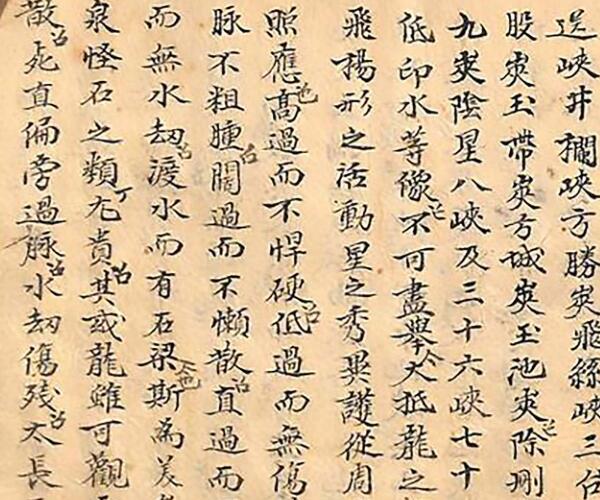 送峽井欄峽方勝夾飛絲峽三
股夾玉帶夾方城夾玉池夾除刪
九夾陰星八峽及三十六峽七十
低印水等像不可盡舉大抵龍之
飛揚形之活動星之秀異護從周
照應高過而不悍硬低過而無傷
脉不粗腫闊過而不懶散直過而
而無水劫渡水而有石梁斯為美
泉怪石之類尤貴其或龍雖可觀
散死直偏旁過脉水劫傷殘太長